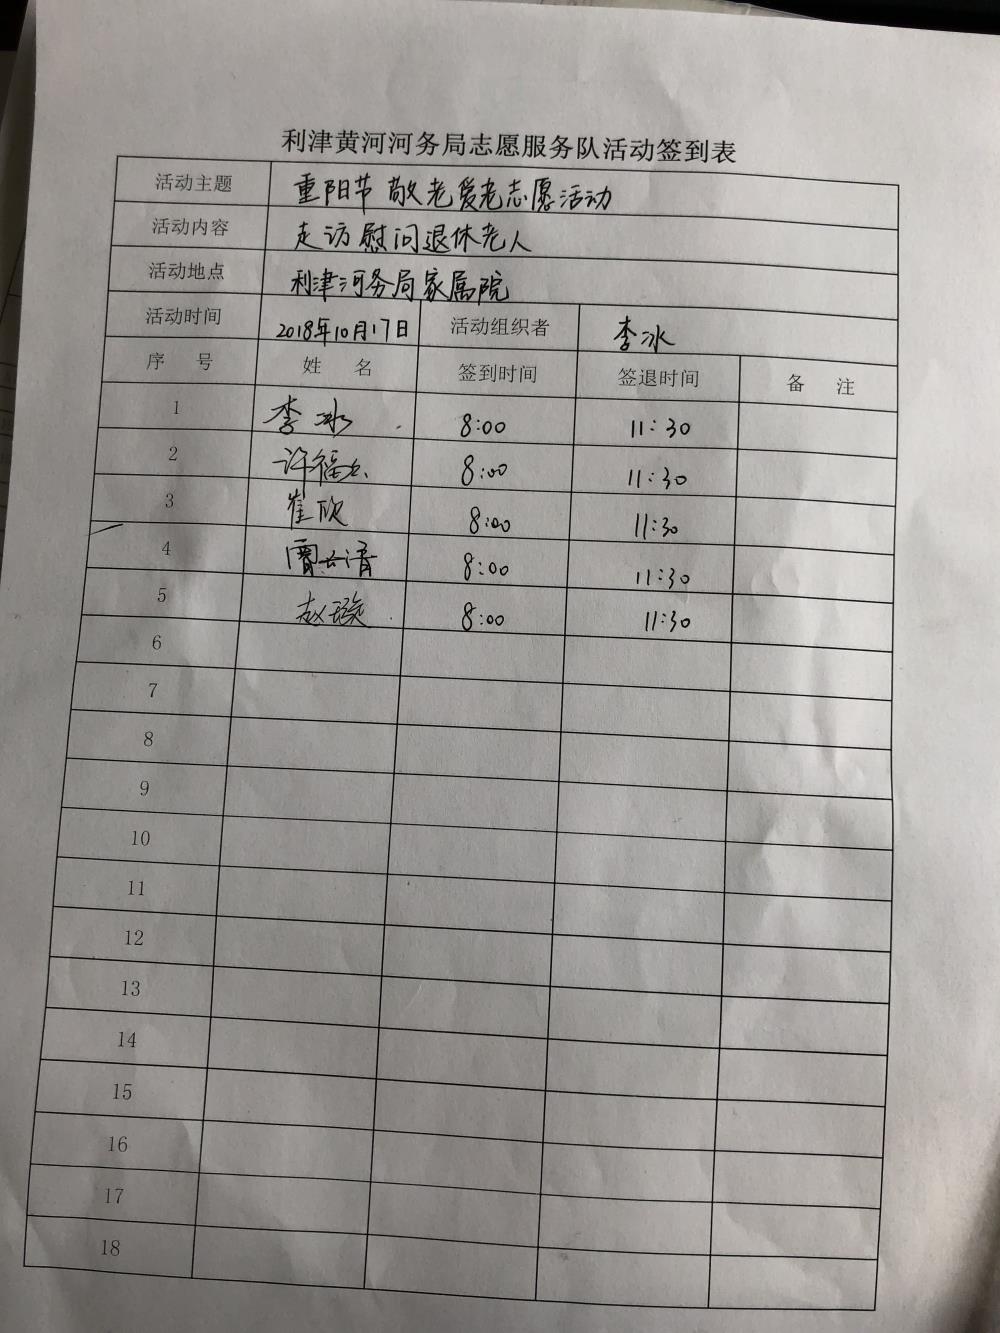 利津黄河河务局志愿服务队活动签到表
活动主题 重阳节敬老爱老志愿活动
活动内容 走访慰问退休老人
活动地点 利津河务局家属院
活动时间 2018年10月17日 活动组织者 李冰
序 号 姓 名 签到时间 签退时间 备 注
1 李冰 8:00 11:30
2 8:00 11:30
3 崔欣 8:00 11:30
4 8:00 11:30
5 赵璇 8:00 11:30
6
7
8
9
10
11
12
13
14
15
16
17
18